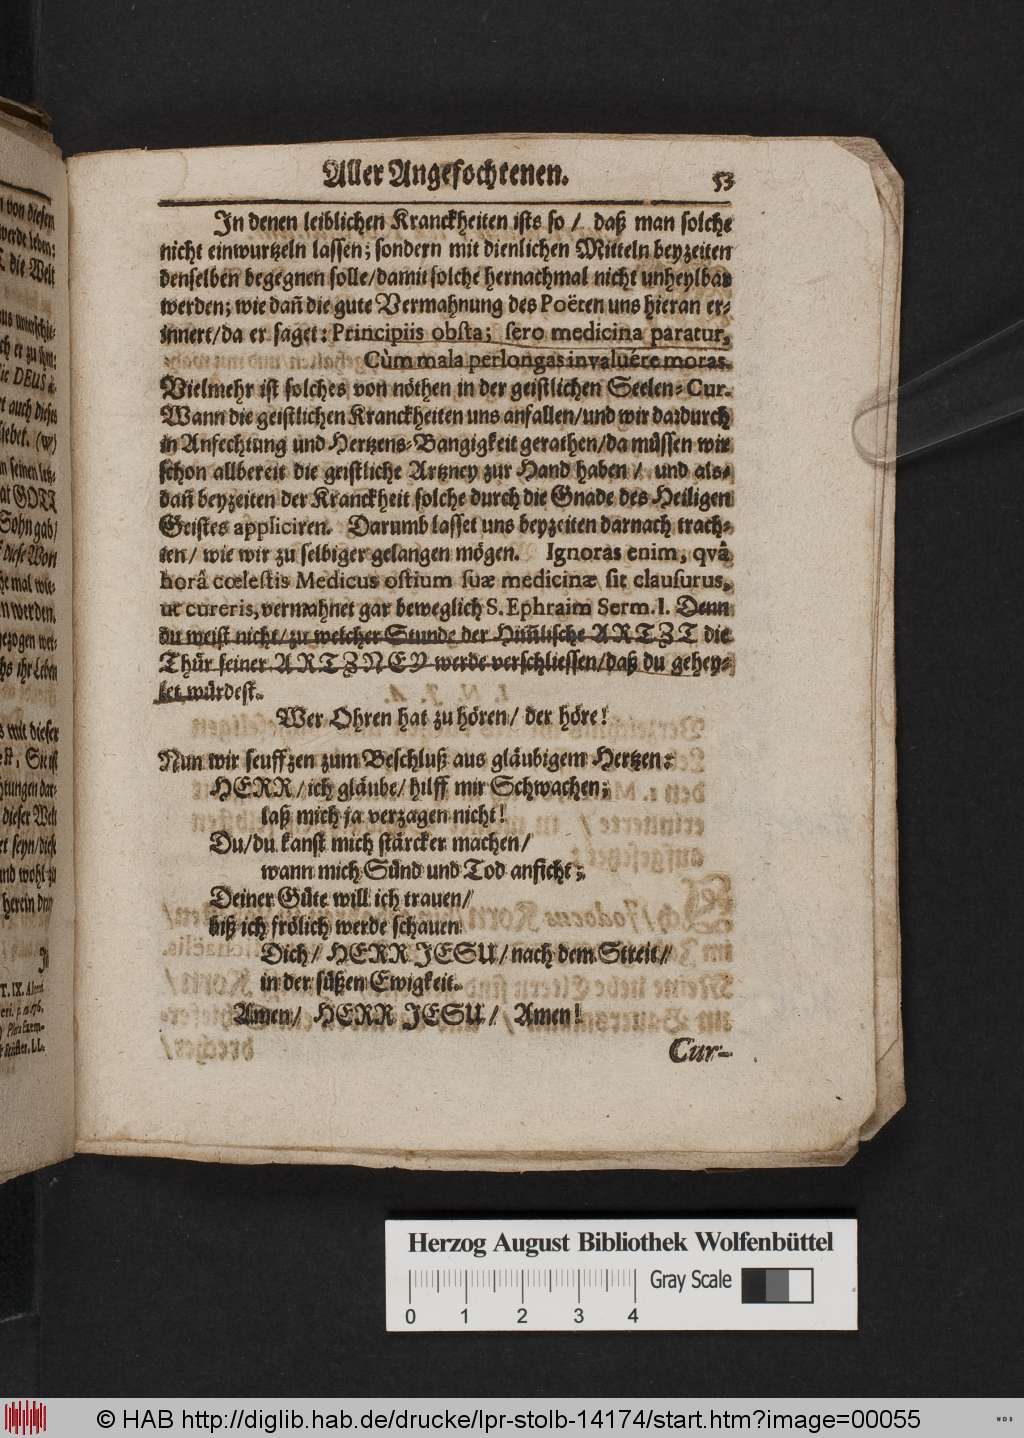 Aller Angefochtenen. 53
In denen leiblichen Kranckheiten ists so / daß man solche
nicht einwurtzeln lassen; sondern mit dienlichen Mitteln beyzeiten
denselben begegnen solle/damit solche hernachmal nicht unheylbar
werden; wie dañ die gute Vermahnung des Poëten uns hieran er-
innert/da er saget: Principiis obsta; sero medicina paratur,
Cùm mala perlongas invaluêre moras.
Vielmehr ist solches von nöthen in der geistlichen Seelen-Cur.
Wann die geistlichen Kranckheiten uns anfallen/und wir dardurch
in Anfechtung und Hertzens-Bangigkeit gerathen/da müssen wir
schon allbereit die geistliche Artzney zur Hand haben / und als-
dañ beyzeiten der Kranckheit solche durch die Gnade des Heiligen
Geistes appliciren. Darumb lasset uns beyzeiten darnach trach-
ten/ wie wir zu selbiger gelangen mögen. Ignoras enim, qvâ
horâ cœlestis Medicus ostium suæ medicinæ sit clausurus,
ut cureris, vermahnet gar beweglich S. Ephraim Serm. I. Denn
du weist nicht/zu welcher Stunde der Him̃lische ARTZT die
Thür seiner ARTZNEY werde verschliessen/daß du gehey-
let würdest.
Wer Ohren hat zu hören/ der höre!
Nun wir seuffzen zum Beschluß aus gläubigem Hertzen:
HERR/ich gläube/hilff mir Schwachen;
laß mich ja verzagen nicht!
Du/du kanst mich stärcker machen/
wann mich Sünd und Tod anficht;
Deiner Güte will ich trauen/
biß ich frölich werde schauen
Dich/ HERR JESU/nach dem Streit/
in der süßen Ewigkeit.
Amen/ HERR JESU/ Amen!
Cur-
Herzog August Bibliothek Wolfenbüttel
Gray Scale
0 1 2 3 4
© HAB http://diglib.hab.de/drucke/lpr-stolb-14174/start.htm?image=00055